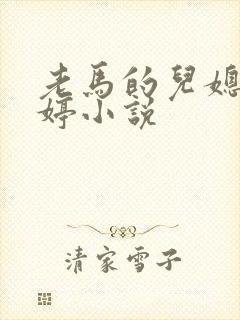 老馬的兒媳
婷小説
清家雪子